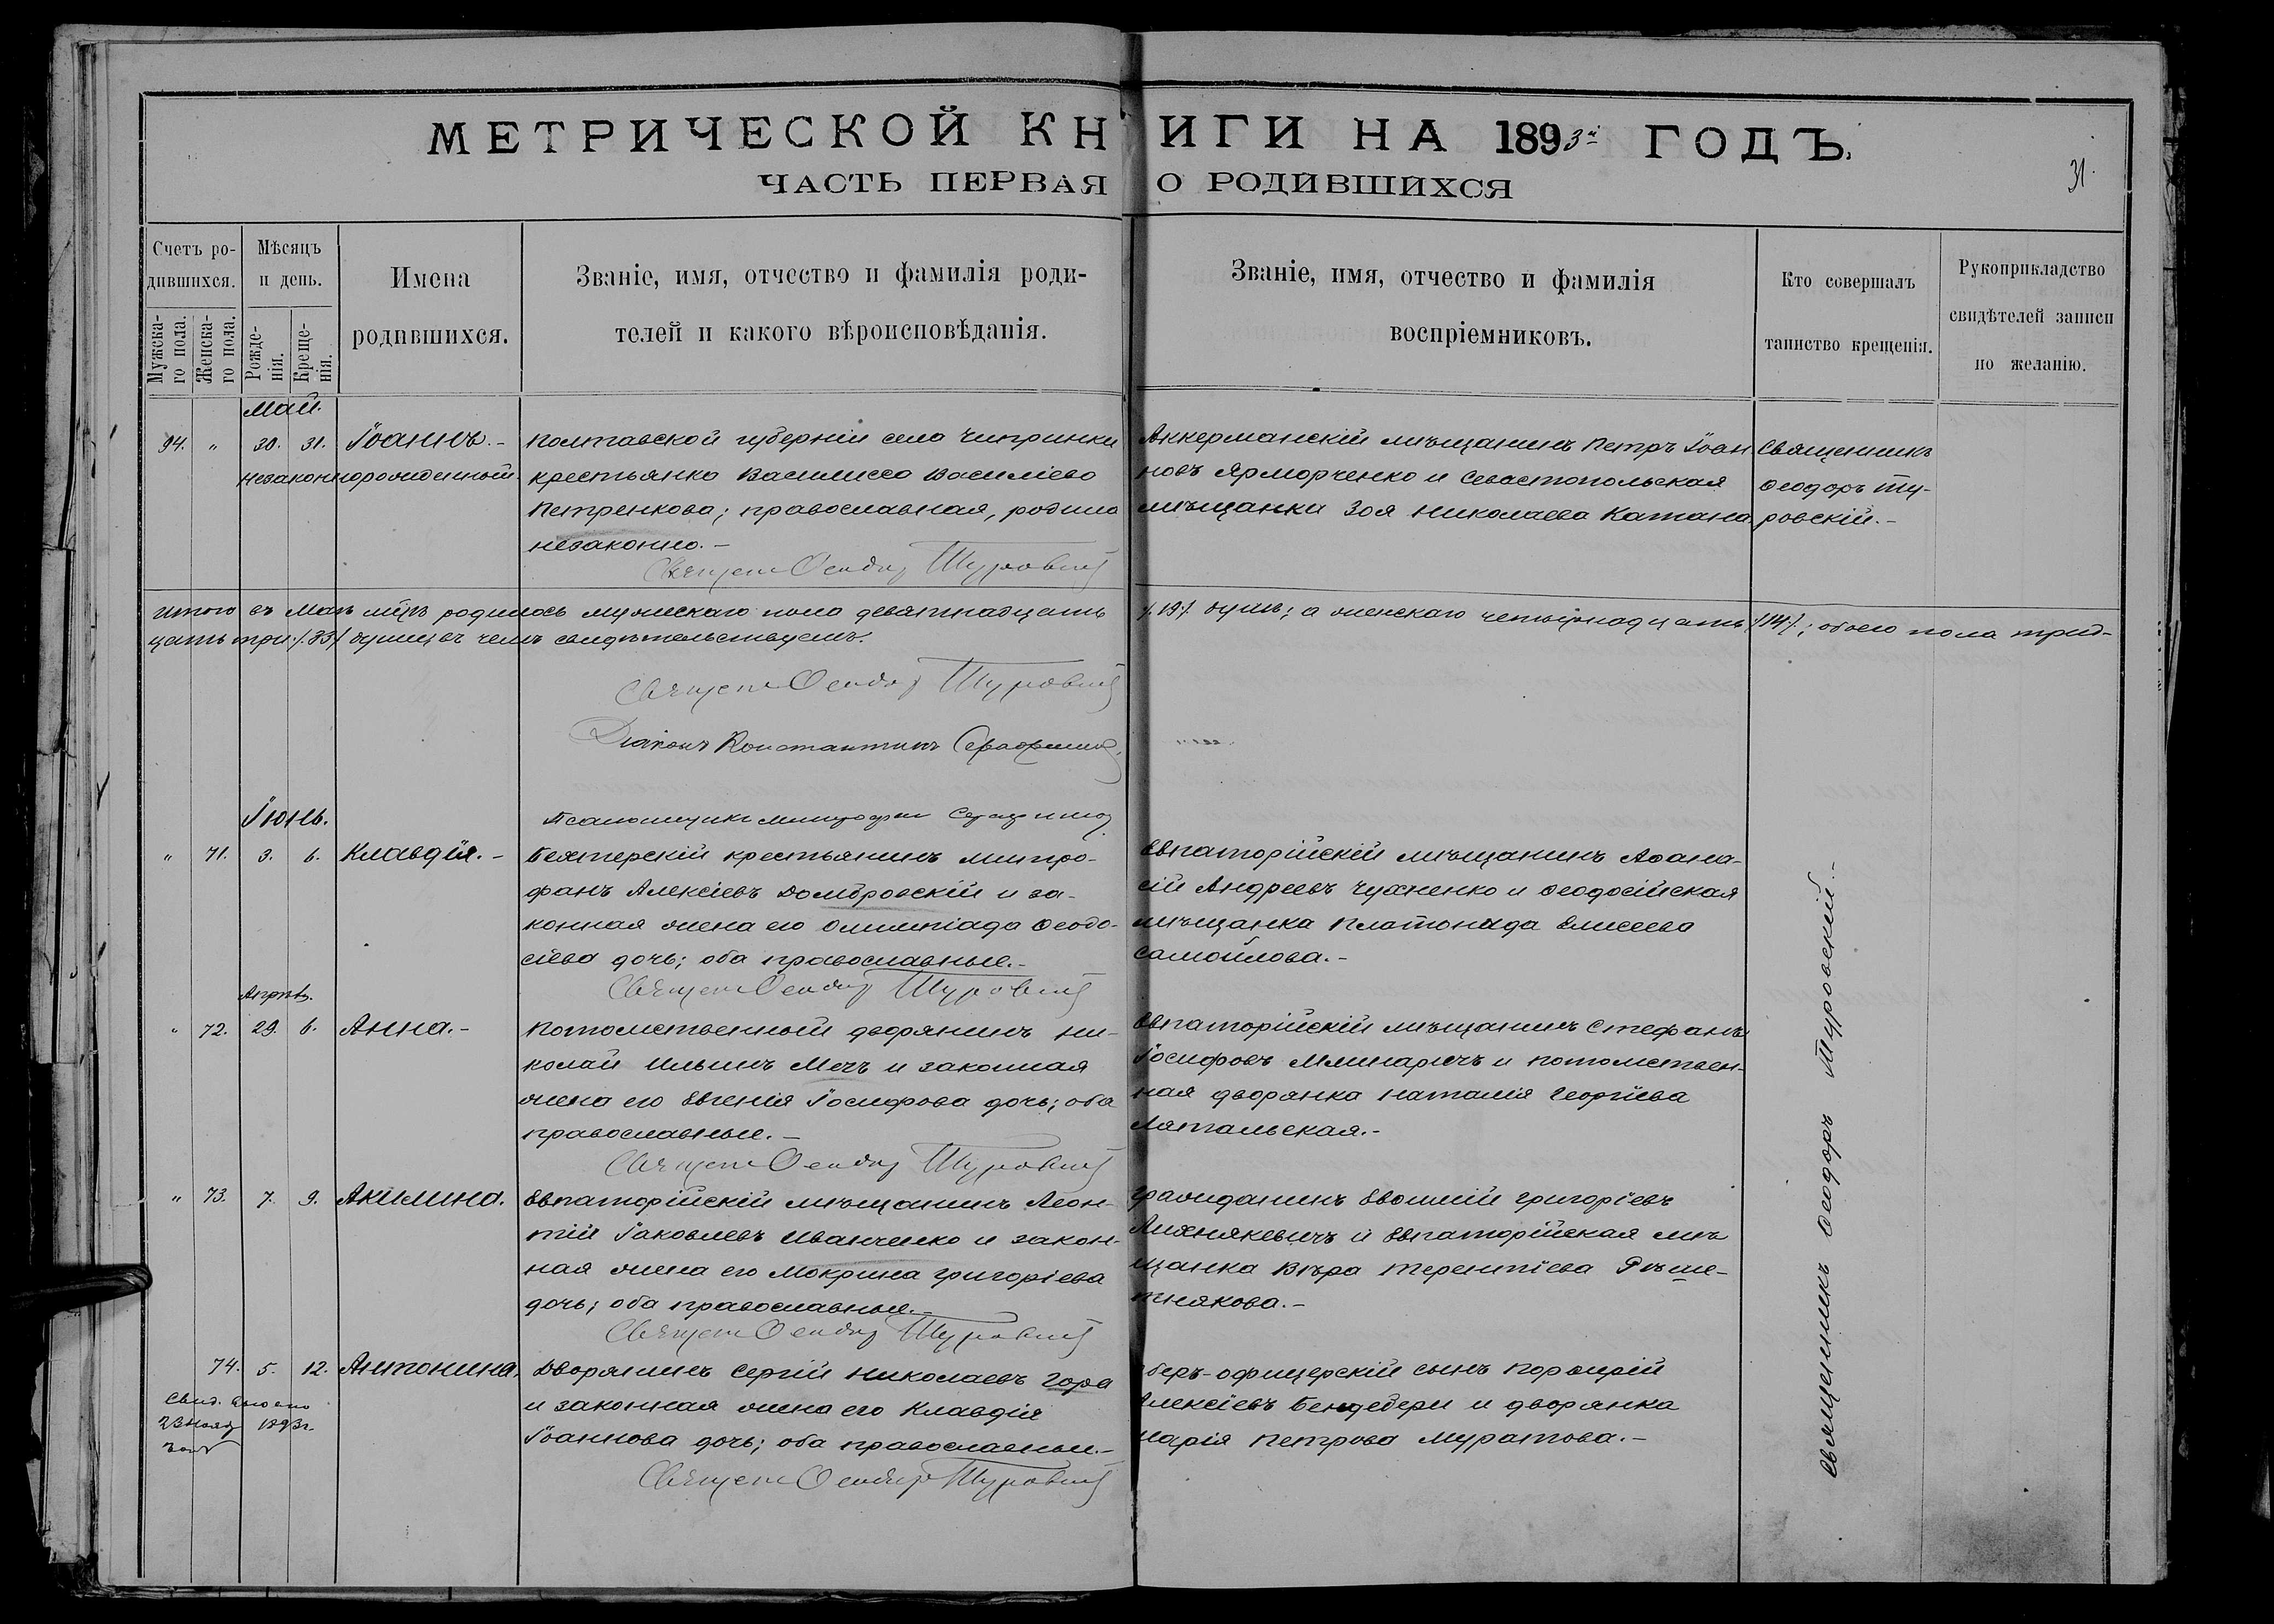 МЕТРИЧЕСКОЙ КНИГИ НА 1893й ГОДЪ.
ЧАСТЬ ПЕРВАЯ О РОДИВШИХСЯ
31.
Счетъ родившихся.
Мужскаго пола.
Женскаго пола.
Мѣсяцъ и день.
Рожденія.
Крещенія.
Имена родившихся.
Званіе, имя, отчество и фамилія родителей и какого вѣроисповѣданія.
Званіе, имя, отчество и фамилія воспріемниковъ.
Кто совершалъ таинство крещенія.
Рукоприкладство свидѣтелей записи по желанію.
Май.
94. " 30. 31. Іоаннъ.-
незаконнорожденный
Полтавской губерніи села Чипринки
крестьянка Василисса Василіева
Петренкова; православная, родила
незаконно.-
Священ Ѳеодор Туровскій
Аккерманскій мѣщанинъ Петръ Іоан
новъ Ярморченко и Севастопольская
мѣщанка Зоя Николаева Катана
Священникъ
Ѳеодоръ Ту-
ровскій.-
Итого въ Маѣ мѣцѣ родилось мужескаго пола девятнадцать /.19./ душъ; а женскаго четырнадцать /14./; обоего пола трид-
цать три /.33/ души въ чемъ свидѣтельствуемъ.
Священ Ѳеодор Туровскій
Діаконъ Константинъ Серафимов
Псаломщикъ Митрофан
Іюнь.
" 71. 3. 6. Клавдія.-
Бехтерскій крестьянинъ Митро-
фанъ Алексіевъ Домбровскій и за-
конная жена его Олимпіада Ѳеодо-
сіева дочь; оба православные.-
Священ Ѳеодор Туровскій
Евпаторійскій мѣщанинъ Аѳана-
сій Андреевъ Чухненко и Ѳеодосійская
мѣщанка Платонида Елисеева
Самойлова.-
Апрѣль.
" 72. 29. 6. Анна.-
Потомственный дворянинъ Ни-
колай Ильинъ Мечъ и законная
жена его Евгенія Іосифова дочь; оба
православные.-
Священ Ѳеодор Туровскій
Евпаторійскій мѣщанинъ Стефанъ
Іосифовъ Млинаричъ и потомствен-
ная дворянка Наталія Георгіева
Лятальская.-
" 73. 7. 9. Акилина.
Евпаторійскій мѣщанинъ Леон-
тій Іаковлевъ Иванченко и закон-
ная жена его Мокрина Григоріева
дочь; оба православные.-
Священ Ѳеодор Туровскій
гражданинъ Евѳимій Григоріевъ
Лихнякевичъ и Евпаторійская мѣ
щанка Вѣра Терентіева Рѣше-
тнякова.-
74. 5. 12. Антонина.
Свид. выдано
23 Нояб 1893г.
Дворянинъ Сергій Николаевъ Гора
и законная жена его Клавдія
Іоаннова дочь; оба православные.-
Священ Ѳеодор Туровскій
беръ-офицерскій сынъ Порфирій
Алексіевъ Бендебери и дворянка
Марія Петрова Муратова.-
Священникъ Ѳеодоръ Туровскій.-